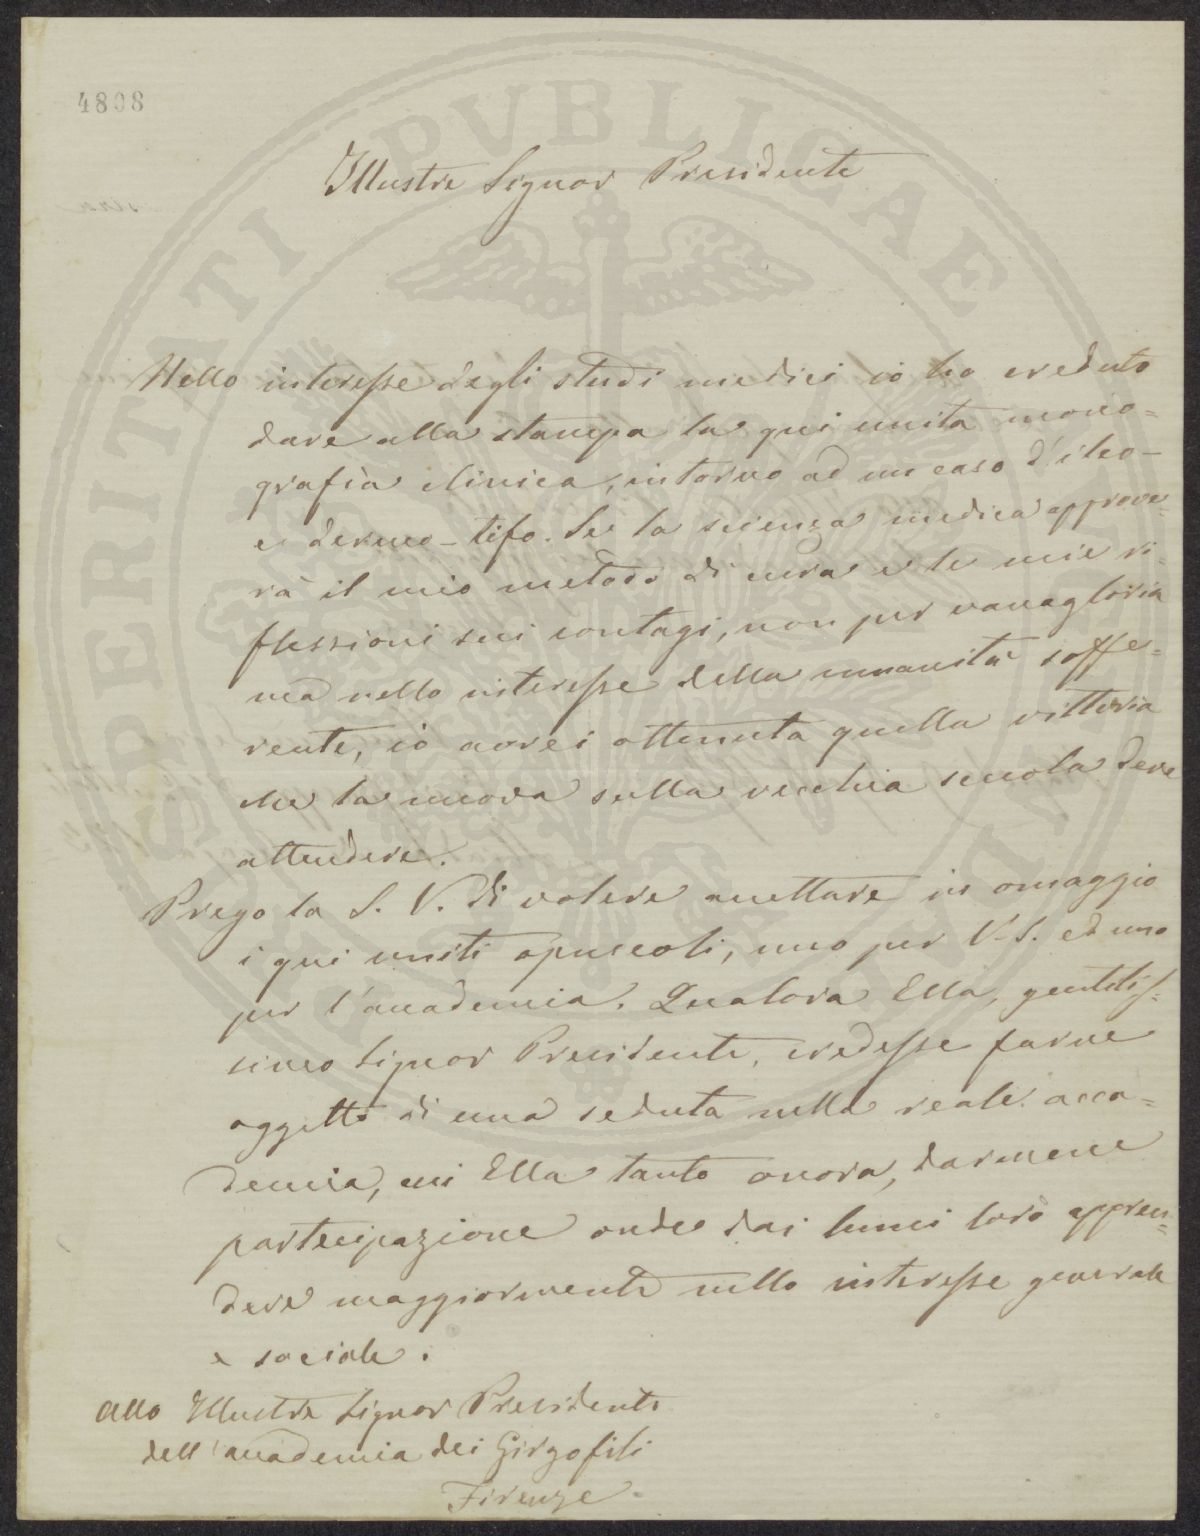 4808
Illustre Signor Presidente
Nello interesse degli studi medici io ho creduto
dare alla stampa la qui unita mono=
grafia clinica, intorno ad un caso d'ileo-
e dermo-tifo. Se la scienza medica approve=
rà il mio metodo di cura e le mie ri=
flessioni sui contagi, non per vanagloria
ma nello interesse della umanità soffe=
rente, io avrei ottenuta quella vittoria
che la nuova sulla vecchia scuola deve
attendere.
Prego la S. V. di volere accettare in omaggio
i qui uniti opuscoli, uno per V. S. ed uno
per l'accademia. Qualora Ella, gentilis=
simo Signor Presidente, credesse farne
oggetto di una seduta nella reale acca=
demia, cui Ella tanto onora, darmene
partecipazione onde dai lumi loro appren=
dere maggiormente nello interesse generale
e sociale.
Allo Illustre Signor Presidente
dell'accademia dei Girgofili
Firenze.
PROSPERITATI PVBLICAE